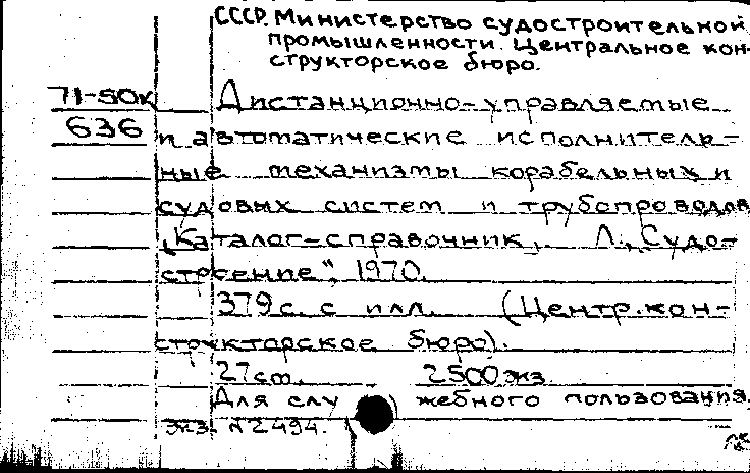 СССР. Министерство судостроительной
промышленности. Центральное кон-
структорское бюро.
71-50к Дистанционно-управляемые
636 и автоматические исполнитель-
ные механизмы корабельных и
судовых систем и трубопроводов
„Каталог-справочник, Л., „Судо-
строение", 1970.
379 с. с илл. (Центр. кон-
структорское бюро).
27 см. 2500 экз.
Для служебного пользования.
экз. №2494.